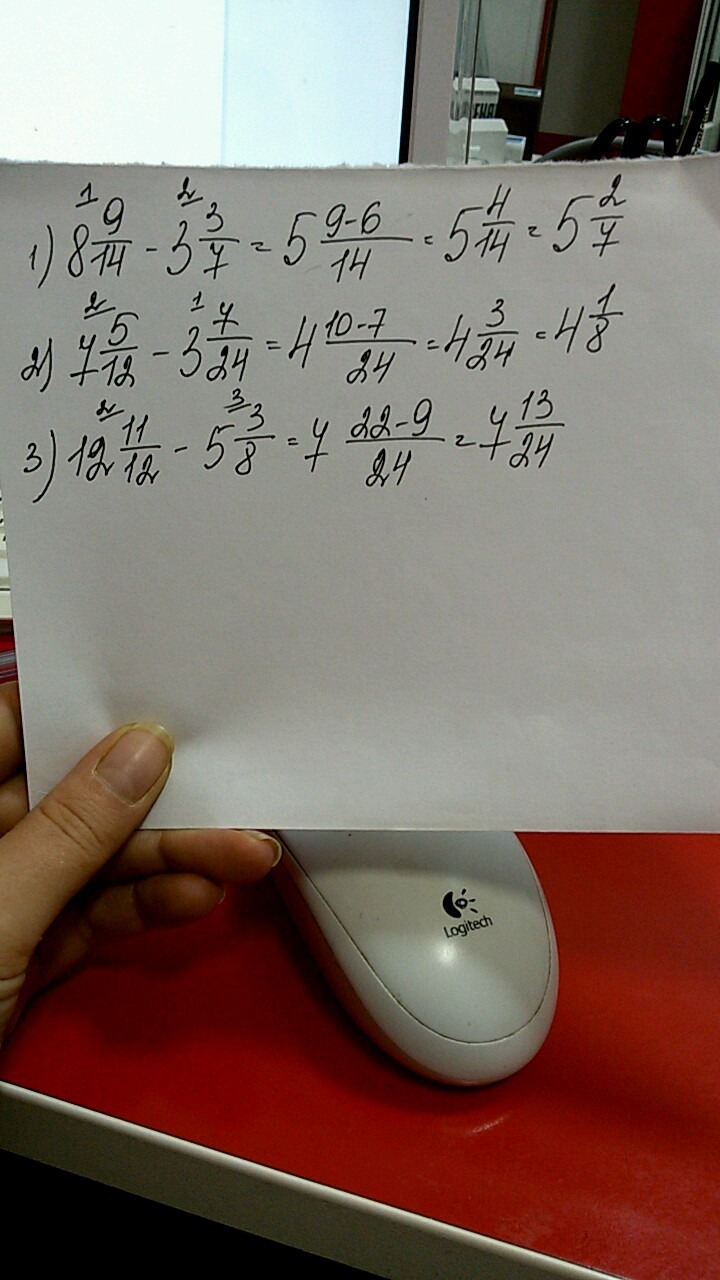 ЕНА
1) 8 9/14 ¹ - 3 3/7 ² = 5 (9-6)/14 = 5 4/14 = 5 2/7
2) 7 5/12 ² - 3 7/24 ¹ = 4 (10-7)/24 = 4 3/24 = 4 1/8
3) 12 11/12 ² - 5 3/8 ³ = 7 (22-9)/24 = 7 13/24
Logitech